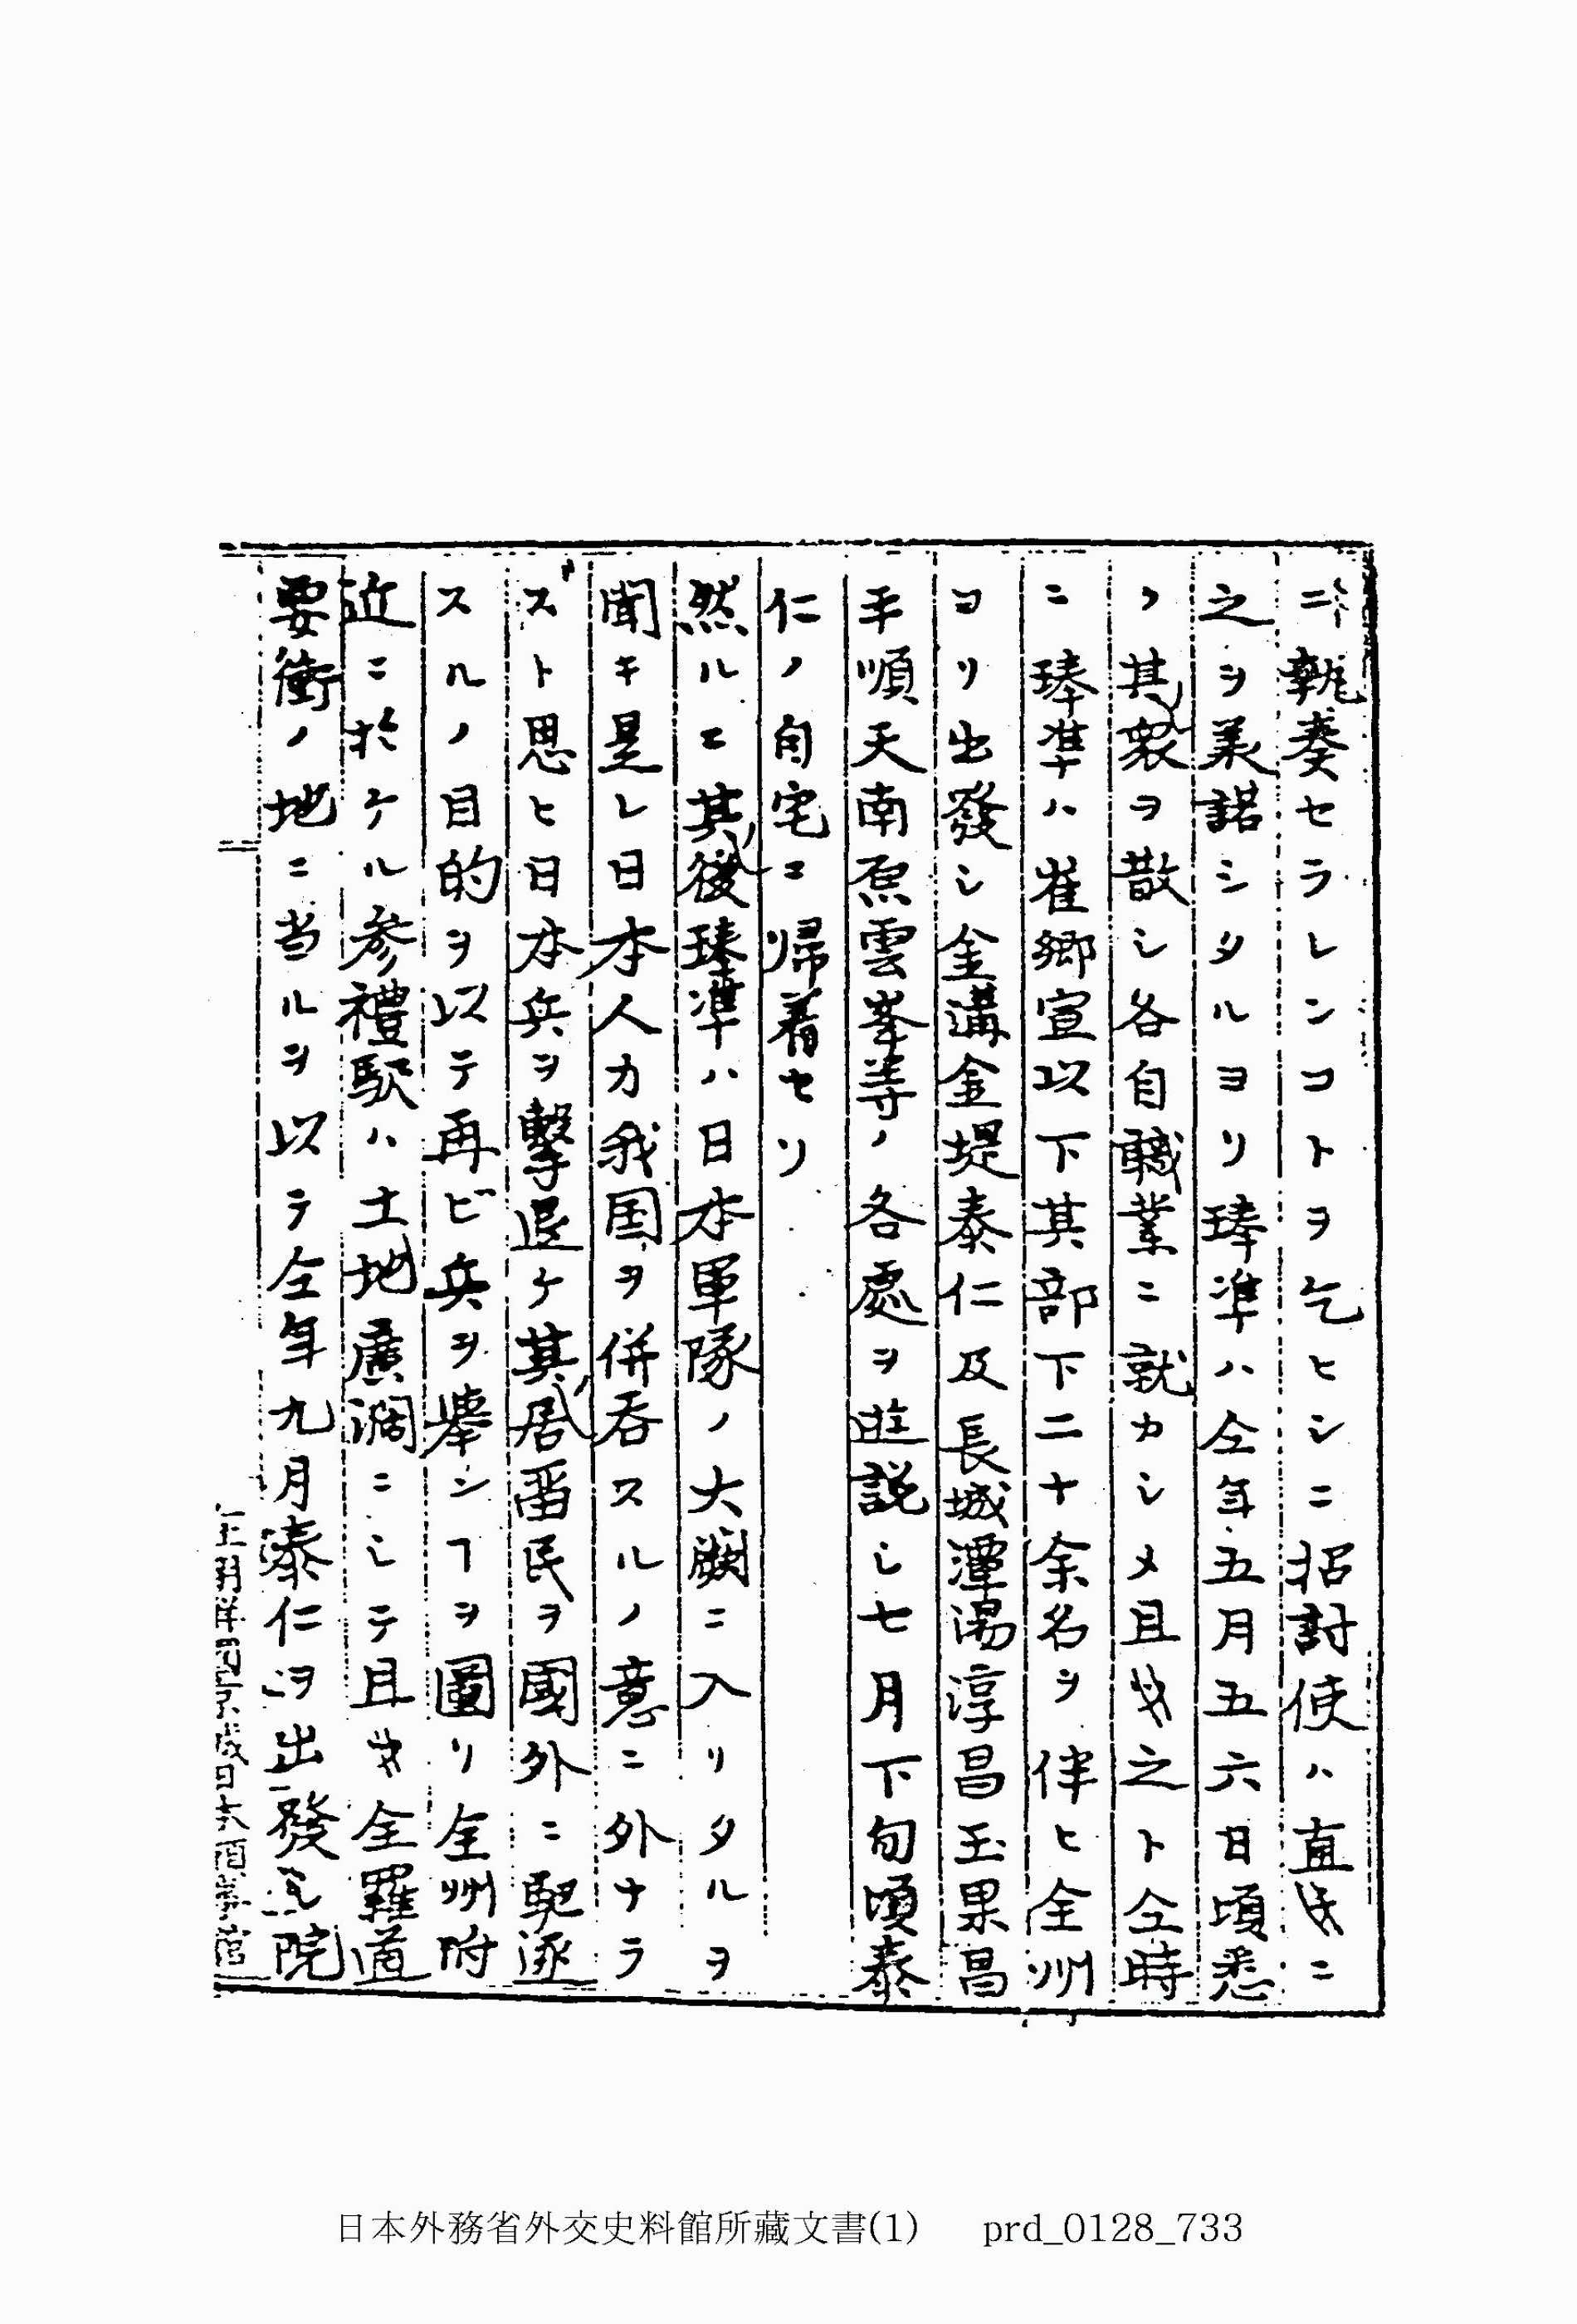 ニ執奏セラレンコトヲ乞ヒシニ招討使ハ直チニ
之ヲ美諾シタルヨリ琫準ハ仝年五月五六日頃悉
ク其衆ヲ散シ各自職業ニ就カシメ且ツ之ト仝時
ニ琫準ハ崔卿宣以下其部下二十余名ヲ伴ヒ全州
ヨリ出發シ金溝金堤泰仁及長城潭陽淳昌玉果昌
平順天南原雲峯等ノ各處ヲ遊説シ七月下旬頃泰
仁ノ自宅ニ帰着セリ
然ルニ其後琫準ハ日本軍隊ノ大闕ニ入リタルヲ
聞キ是レ日本人カ我国ヲ併呑スルノ意ニ外ナラ
スト思ヒ日本兵ヲ擊退ケ其居留民ヲ國外ニ駆逐
スルノ目的ヲ以テ再ビ兵ヲ擧ンヿヲ圖リ全州附
近ニ於ケル参禮駅ハ土地廣濶ニシテ且ツ全羅道
要衝ノ地ニ当ルヲ以テ仝年九月泰仁ヲ出發シ院
在朝鮮國京城日本領事館
日本外務省外交史料館所藏文書(1) prd_0128_733